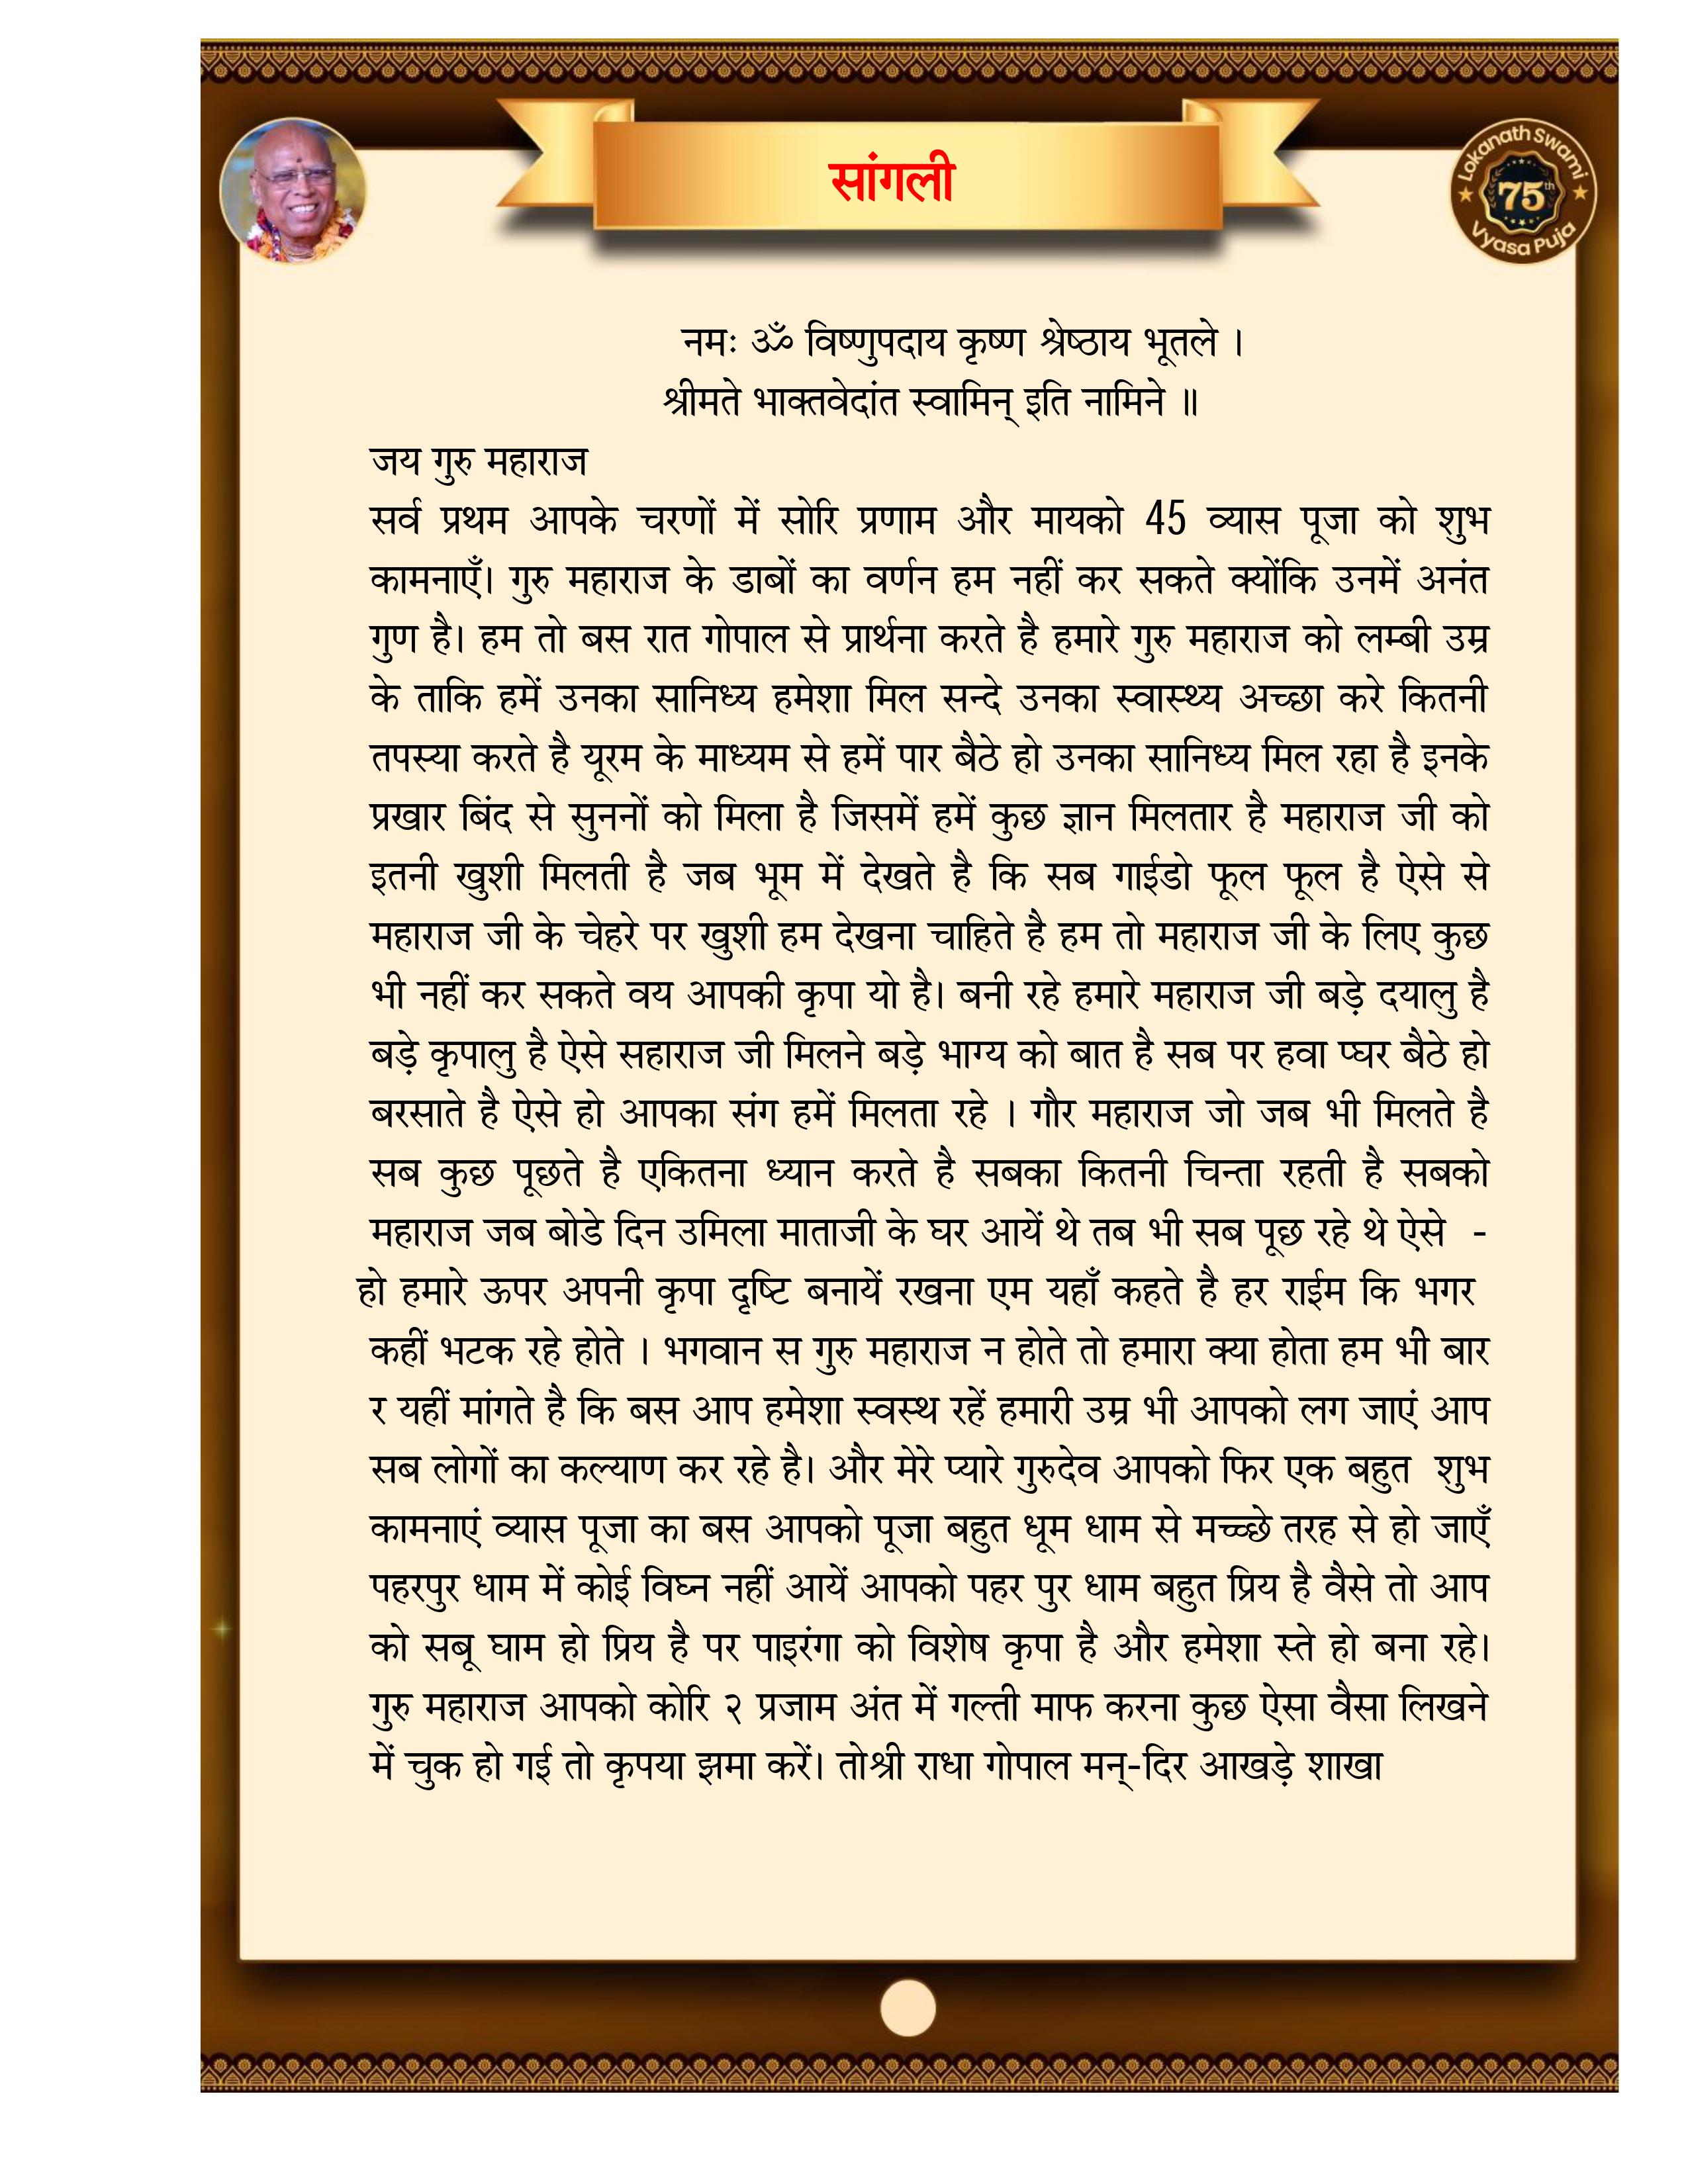 सांगली
Lokanath Swami
75th
Vyasa Puja
नमः ॐ विष्णुपदाय कृष्ण श्रेष्ठाय भूतले ।
श्रीमते भाक्तवेदांत स्वामिन् इति नामिने ॥
जय गुरु महाराज
सर्व प्रथम आपके चरणों में सोरि प्रणाम और मायको 45 व्यास पूजा को शुभ
कामनाएँ। गुरु महाराज के डाबों का वर्णन हम नहीं कर सकते क्योंकि उनमें अनंत
गुण है। हम तो बस रात गोपाल से प्रार्थना करते है हमारे गुरु महाराज को लम्बी उम्र
के ताकि हमें उनका सानिध्य हमेशा मिल सन्दे उनका स्वास्थ्य अच्छा करे कितनी
तपस्या करते है यूरम के माध्यम से हमें पार बैठे हो उनका सानिध्य मिल रहा है इनके
प्रखार बिंद से सुननों को मिला है जिसमें हमें कुछ ज्ञान मिलतार है महाराज जी को
इतनी खुशी मिलती है जब भूम में देखते है कि सब गाईडो फूल फूल है ऐसे से
महाराज जी के चेहरे पर खुशी हम देखना चाहिते है हम तो महाराज जी के लिए कुछ
भी नहीं कर सकते वय आपकी कृपा यो है। बनी रहे हमारे महाराज जी बड़े दयालु है
बड़े कृपालु है ऐसे सहाराज जी मिलने बड़े भाग्य को बात है सब पर हवा प्घर बैठे हो
बरसाते है ऐसे हो आपका संग हमें मिलता रहे । गौर महाराज जो जब भी मिलते है
सब कुछ पूछते है एकितना ध्यान करते है सबका कितनी चिन्ता रहती है सबको
महाराज जब बोडे दिन उमिला माताजी के घर आयें थे तब भी सब पूछ रहे थे ऐसे -
हो हमारे ऊपर अपनी कृपा दृष्टि बनायें रखना एम यहाँ कहते है हर राईम कि भगर
कहीं भटक रहे होते । भगवान स गुरु महाराज न होते तो हमारा क्या होता हम भी बार
र यहीं मांगते है कि बस आप हमेशा स्वस्थ रहें हमारी उम्र भी आपको लग जाएं आप
सब लोगों का कल्याण कर रहे है। और मेरे प्यारे गुरुदेव आपको फिर एक बहुत शुभ
कामनाएं व्यास पूजा का बस आपको पूजा बहुत धूम धाम से मच्च्छे तरह से हो जाएँ
पहरपुर धाम में कोई विघ्न नहीं आयें आपको पहर पुर धाम बहुत प्रिय है वैसे तो आप
को सबू घाम हो प्रिय है पर पाइरंगा को विशेष कृपा है और हमेशा स्ते हो बना रहे।
गुरु महाराज आपको कोरि २ प्रजाम अंत में गल्ती माफ करना कुछ ऐसा वैसा लिखने
में चुक हो गई तो कृपया झमा करें। तोश्री राधा गोपाल मन्-दिर आखड़े शाखा